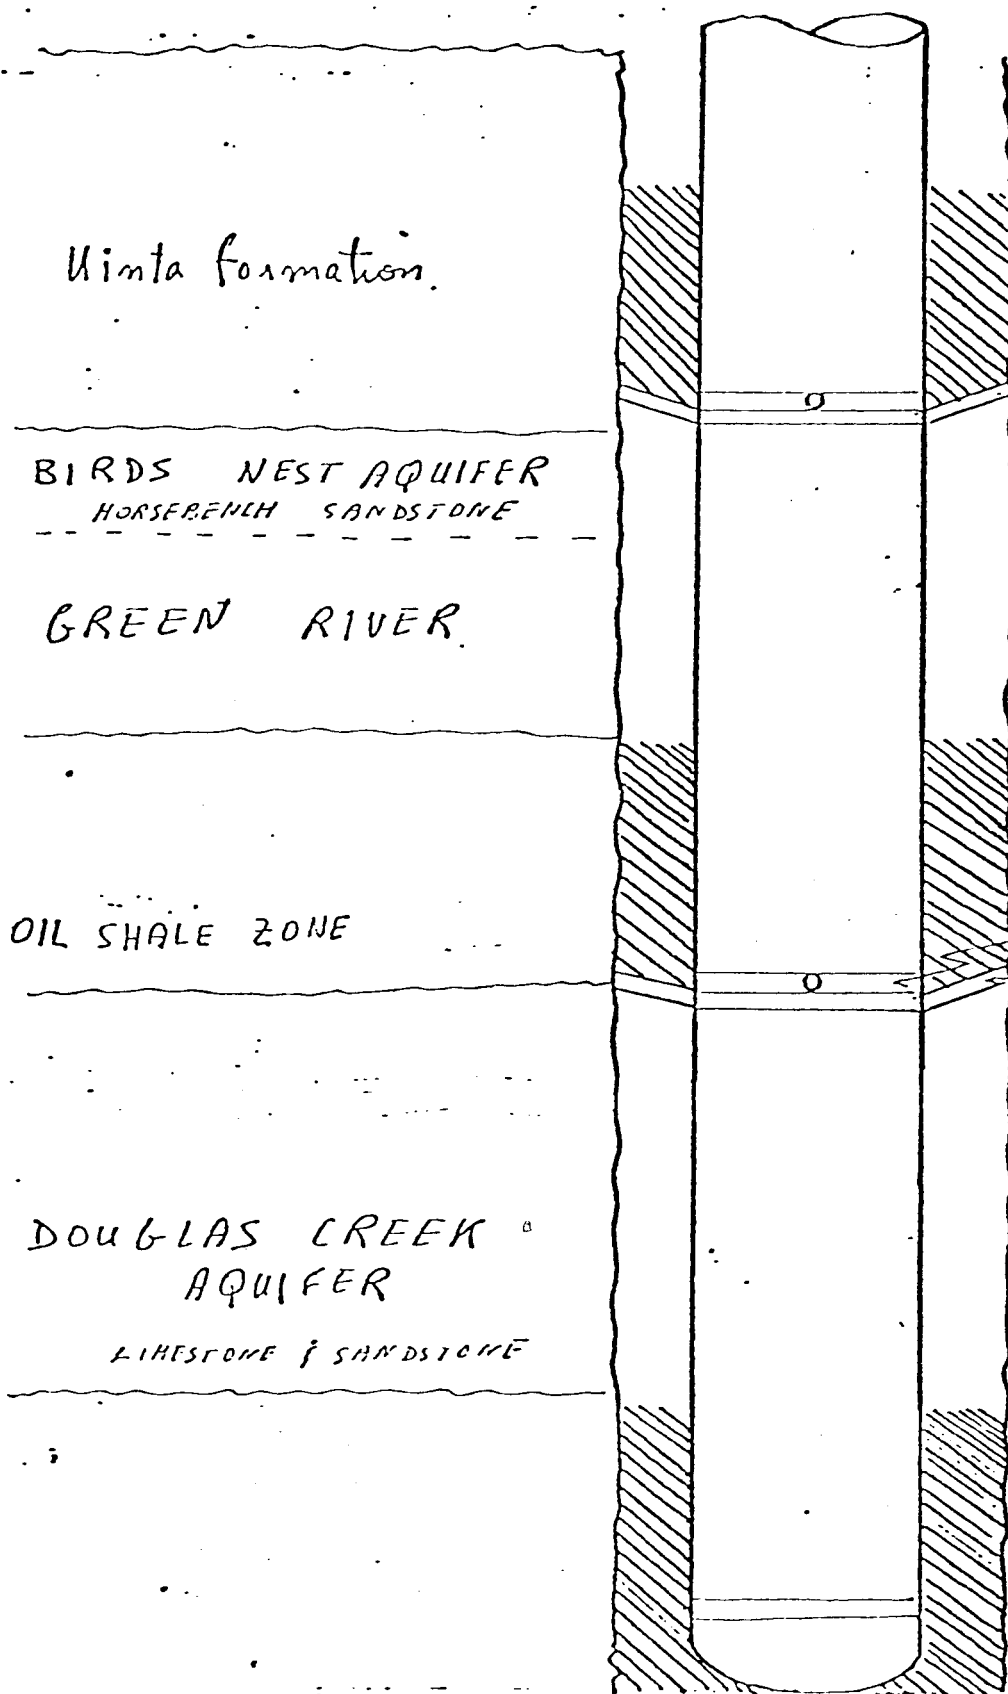 Uinta formation.
BIRDS NEST AQUIFER
HORSEBENCH SANDSTONE
GREEN RIVER.
OIL SHALE ZONE
DOUGLAS CREEK
AQUIFER
LIMESTONE & SANDSTONE